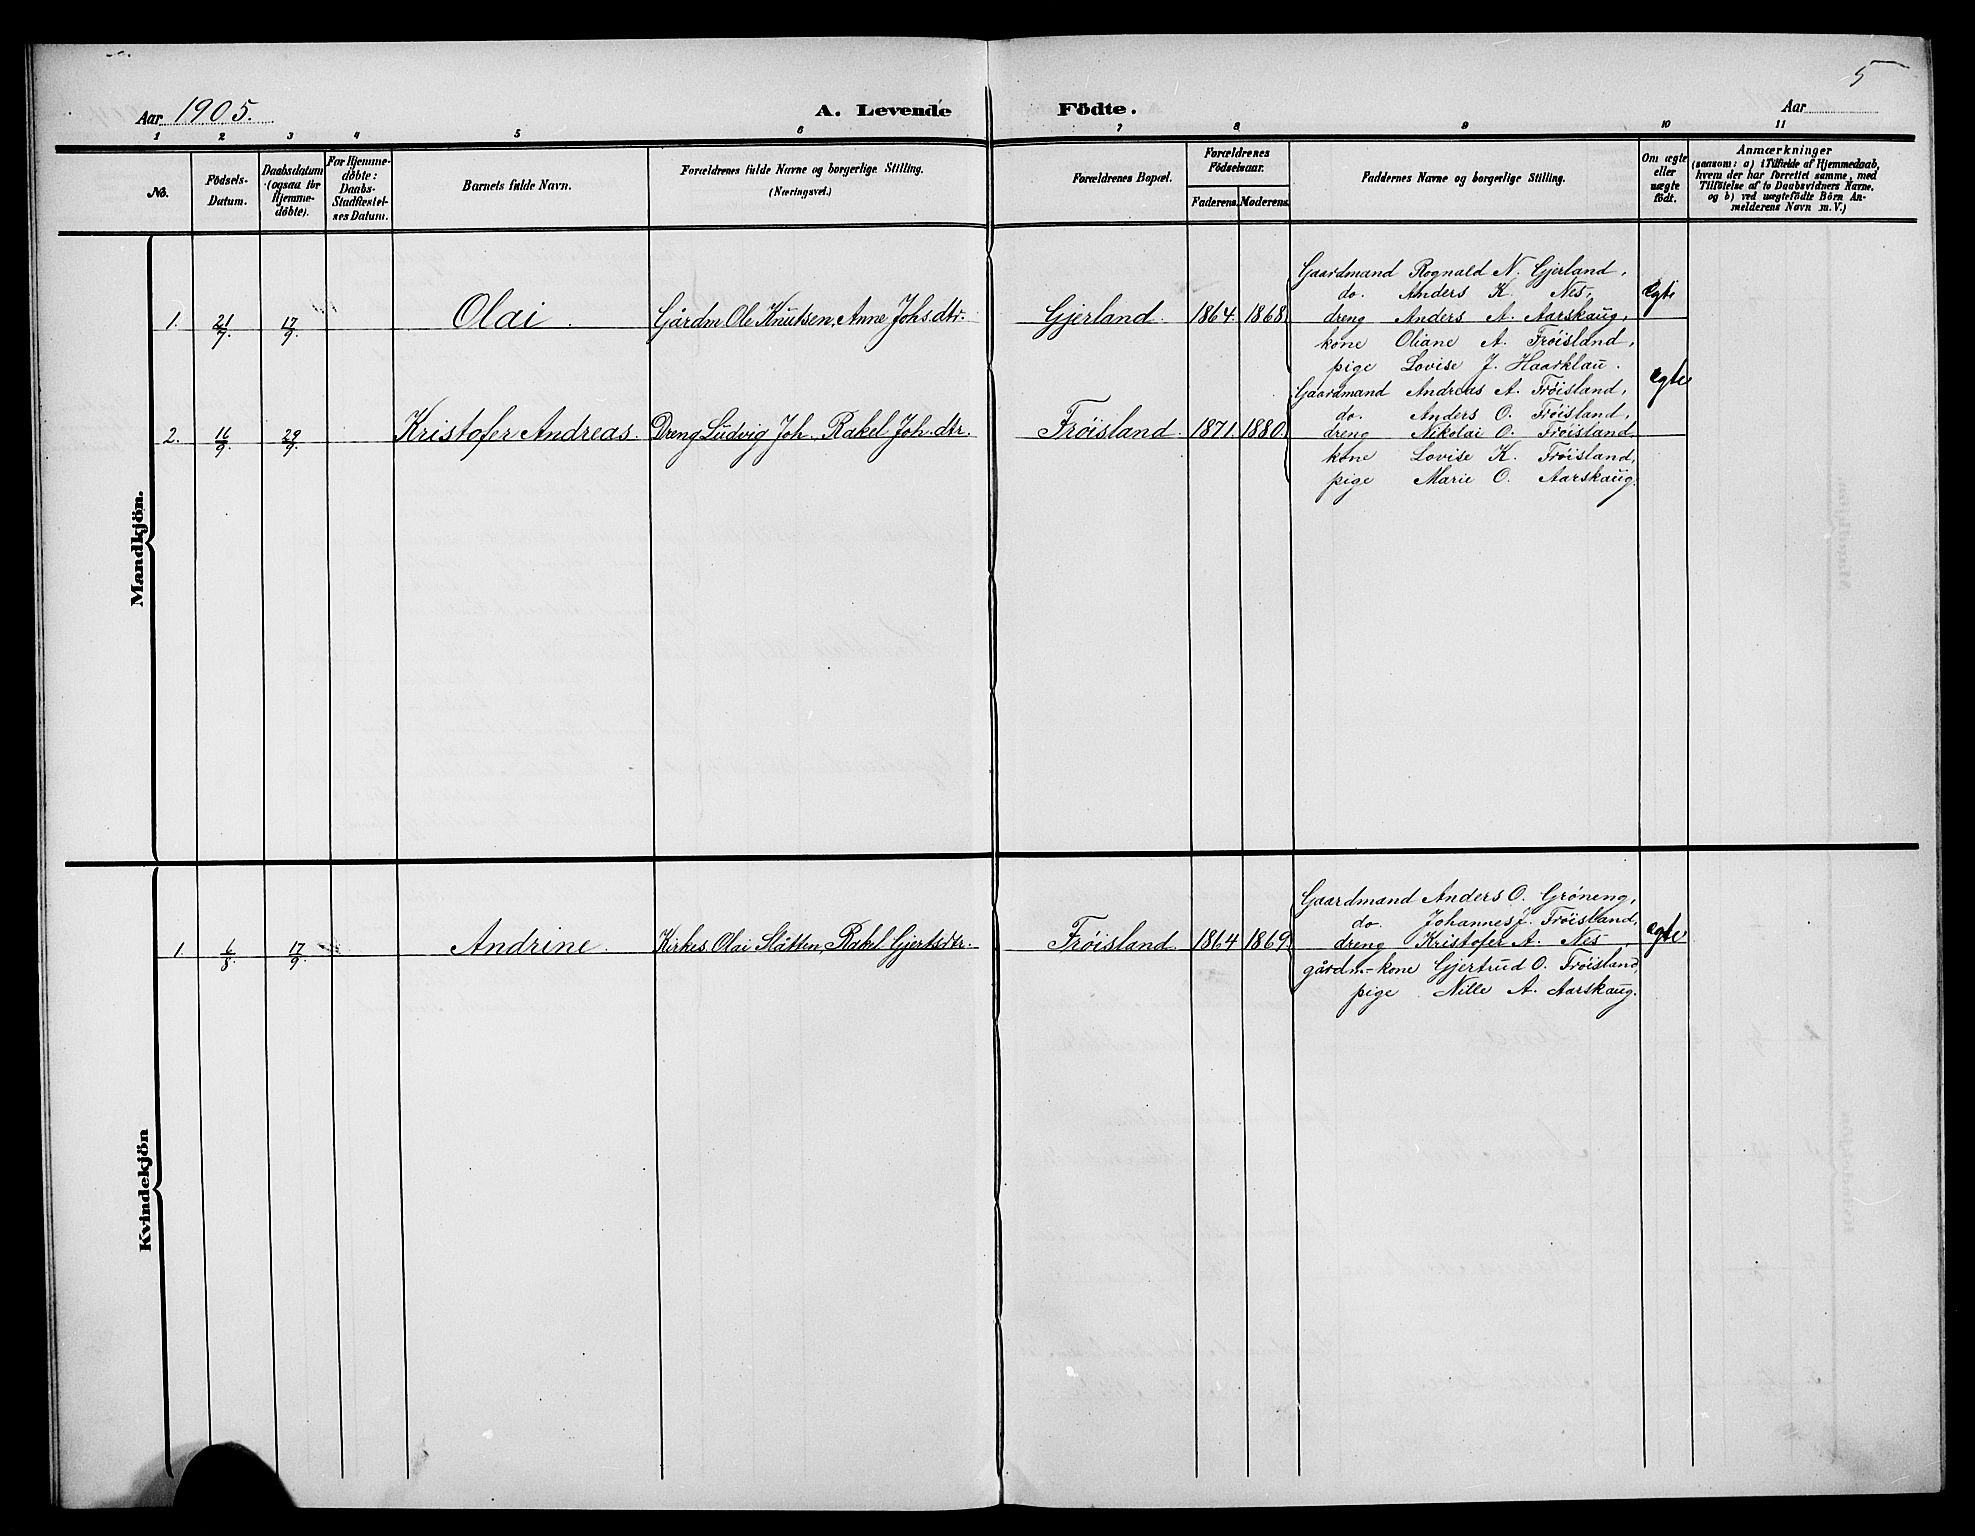 5
Aar 1905. A. Levende Födte. Aar
1 2 3 4 5 6 7 8 9 10 11
No.
Födsels-
Datum.
Daabsdatum
(ogsaa for
Hjemme-
døbte).
For Hjemme-
døbte:
Daabs-
Stadfæstel-
ses Datum.
Barnets fulde Navn.
Forældrenes fulde Navne og borgerlige Stilling.
(Næringsvei.)
Forældrenes Bopæl.
Forældrenes
Fødselsaar.
Faderens. Moderens.
Faddernes Navne og borgerlige Stilling.
Om ægte
eller
uægte
født.
Anmærkninger
(saasom: a) i Tilfælde af Hjemmedaab,
hvem der har forrettet samme, med
Tilføielse af to Daabsvidners Navne,
og b) ved uægtefödte Börn An-
melderens Navn m. V.)
Mandkjön.
1. 21/7 17/9 Olai. Gårdm Ole Knutsen, Anne Johs dtr. Gjerland. 1864. 1868. ægte
Gaardmand Rognald N. Gjerland,
do. Anders K. Nes,
dreng Anders A. Aarskaug,
kone Oliane A. Frøisland,
pige Lovise J. Haarklau.
2. 16/9 29/9 Kristofer Andreas. Dreng Ludvig Joh, Rakel Joh. dtr. Frøisland. 1871. 1880. ægte
Gaardmand Andreas A. Frøisland,
do. Anders O. Frøisland,
dreng Nikolai O. Frøisland,
kone Lovise K. Frøisland,
pige Marie O. Aarskaug.
Kvindekjön
1. 6/8. 17/9 Andrine. Kirkes Olai Slåtten, Rakel Gjertsdtr. Frøisland 1864 1869 ægte
Gaardmand Anders O. Grøneng,
do. Johannes J. Frøisland,
dreng Kristofer A. Nes,
gårdm-kone Gjertrud O. Frøisland,
pige Nille A. Aarskaug.